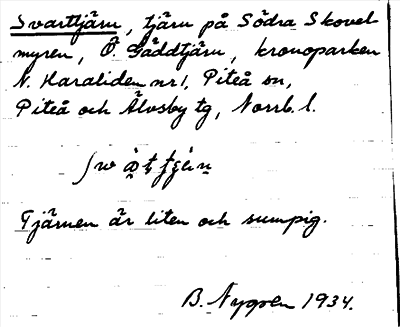 Svarttjärn, tjärn på Södra Skovel
myren, Ö. Gäddtjärn, kronoparken
N. Haraliden nr 1, Piteå sn,
Piteå och Älvsby tg, Norrb. l.
Tjärnen är liten och sumpig.
B. Nygren 1934.